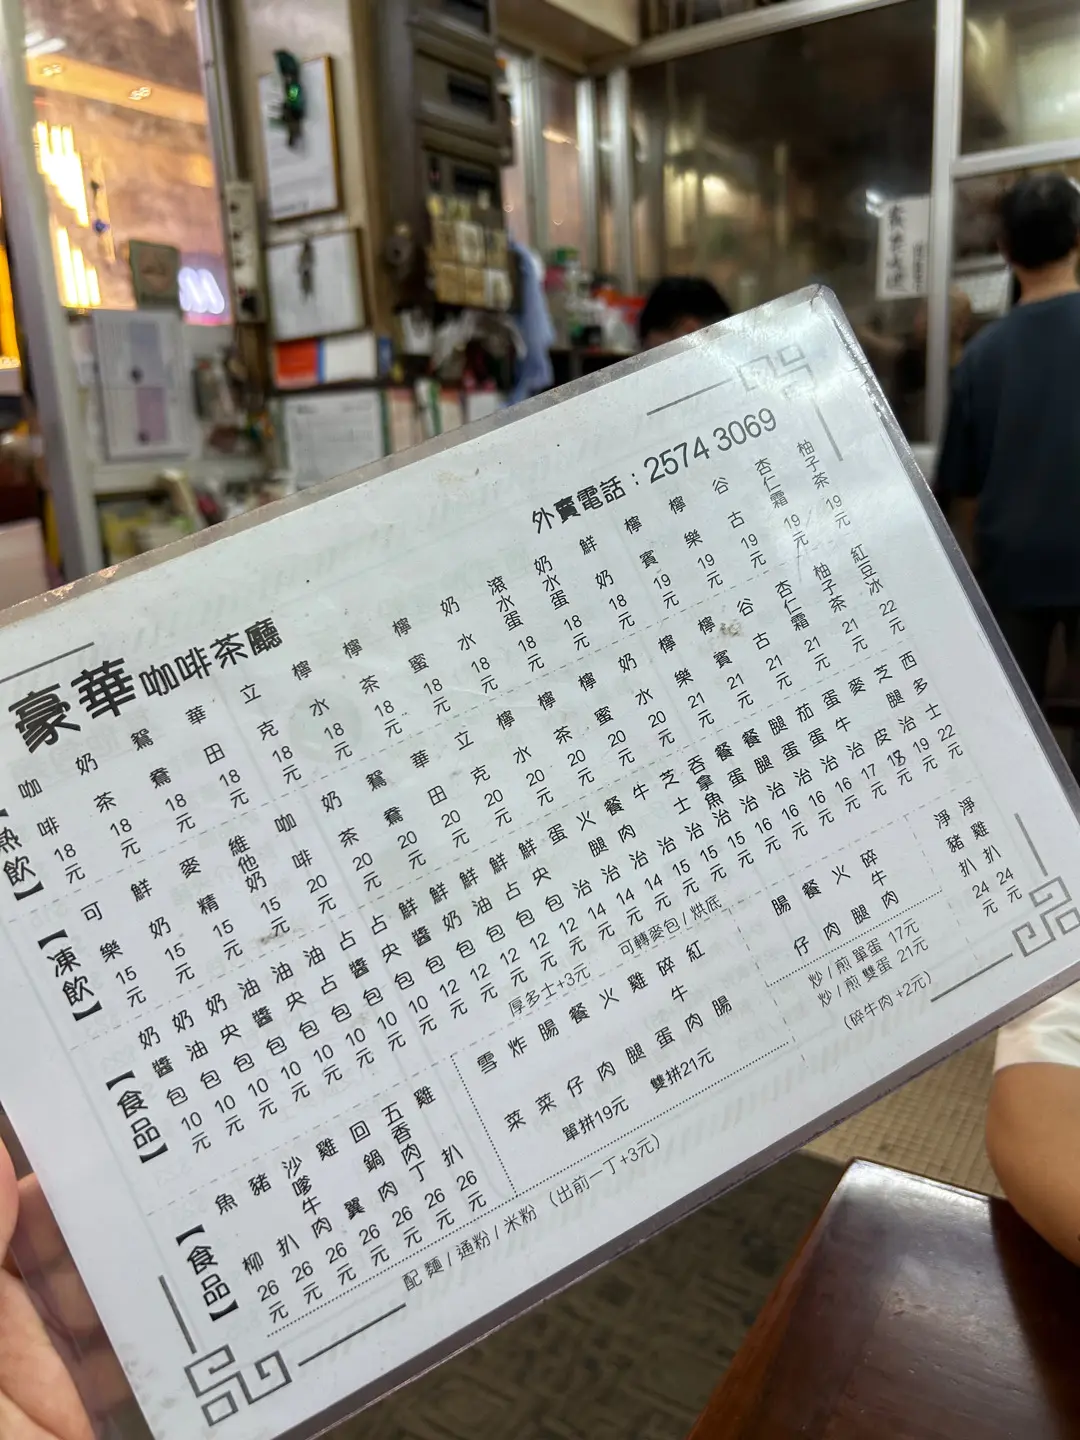 豪華咖啡茶廳
外賣電話：2574 3069
【熱飲】
咖啡 18元
奶茶 18元
鴛鴦 18元
華田 18元
立克 18元
檸水 18元
檸茶 18元
檸蜜 18元
奶水 18元
滾水蛋 18元
奶水蛋 18元
鮮奶 18元
檸賓 19元
檸樂 19元
谷古 19元
杏仁霜 19元
柚子茶 19元
【凍飲】
可樂 15元
鮮奶 15元
麥精 15元
維他奶 15元
咖啡 20元
奶茶 20元
鴛鴦 20元
華田 20元
立克 20元
檸水 20元
檸茶 20元
檸蜜 20元
奶水 20元
檸樂 21元
檸賓 21元
谷古 21元
杏仁霜 21元
柚子茶 21元
紅豆冰 22元
【食品】
奶醬包 10元
奶油包 10元
奶央包 10元
油醬包 10元
油央包 10元
油占包 10元
占醬包 10元
占央包 10元
鮮醬包 12元
鮮奶包 12元
鮮油包 12元
鮮占包 12元
鮮央包 12元
蛋治 14元
火腿治 14元
餐肉治 14元
牛治 15元
芝士治 15元
吞拿魚治 15元
餐蛋治 16元
餐腿治 16元
腿蛋治 16元
茄蛋治 16元
蛋牛治 17元
麥皮 18元
芝腿治 19元
西多士 22元
厚多士+3元 可轉麥包/烘底
【食品】
魚柳 26元
豬扒 26元
沙嗲牛肉 26元
雞翼 26元
回鍋肉 26元
五香肉丁 26元
雞扒 26元
雪菜
炸菜
腸仔
餐肉
火腿
雞蛋
碎牛肉
紅腸
單拼19元 雙拼21元
配 麵/通粉/米粉（出前一丁+3元）
腸仔
餐肉
火腿
碎牛肉
炒/煎單蛋 17元
炒/煎雙蛋 21元
（碎牛肉+2元）
淨豬扒 24元
淨雞扒 24元